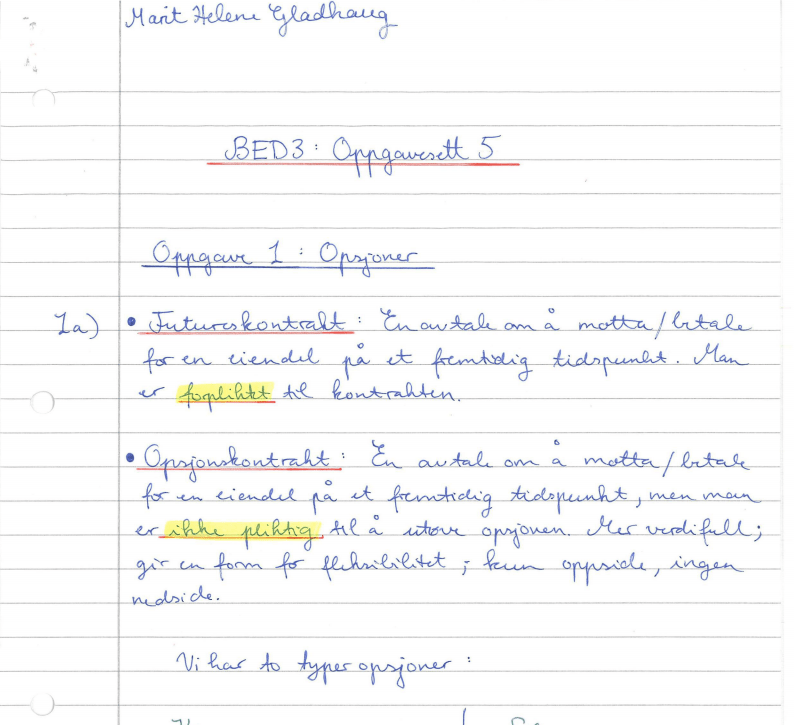 Marit Helene Gladhaug
BED3: Oppgavesett 5
Oppgave 1: Opsjoner
1a) • Futureskontrakt: En avtale om å motta/betale
for en eiendel på et fremtidig tidspunkt. Man
er forpliktet til kontrakten.
• Opsjonskontrakt: En avtale om å motta/betale
for en eiendel på et fremtidig tidspunkt, men man
er ikke pliktig til å utøve opsjonen. Mer verdifull;
gir en form for fleksibilitet; kun oppside, ingen
nedside.
Vi har to typer opsjoner: